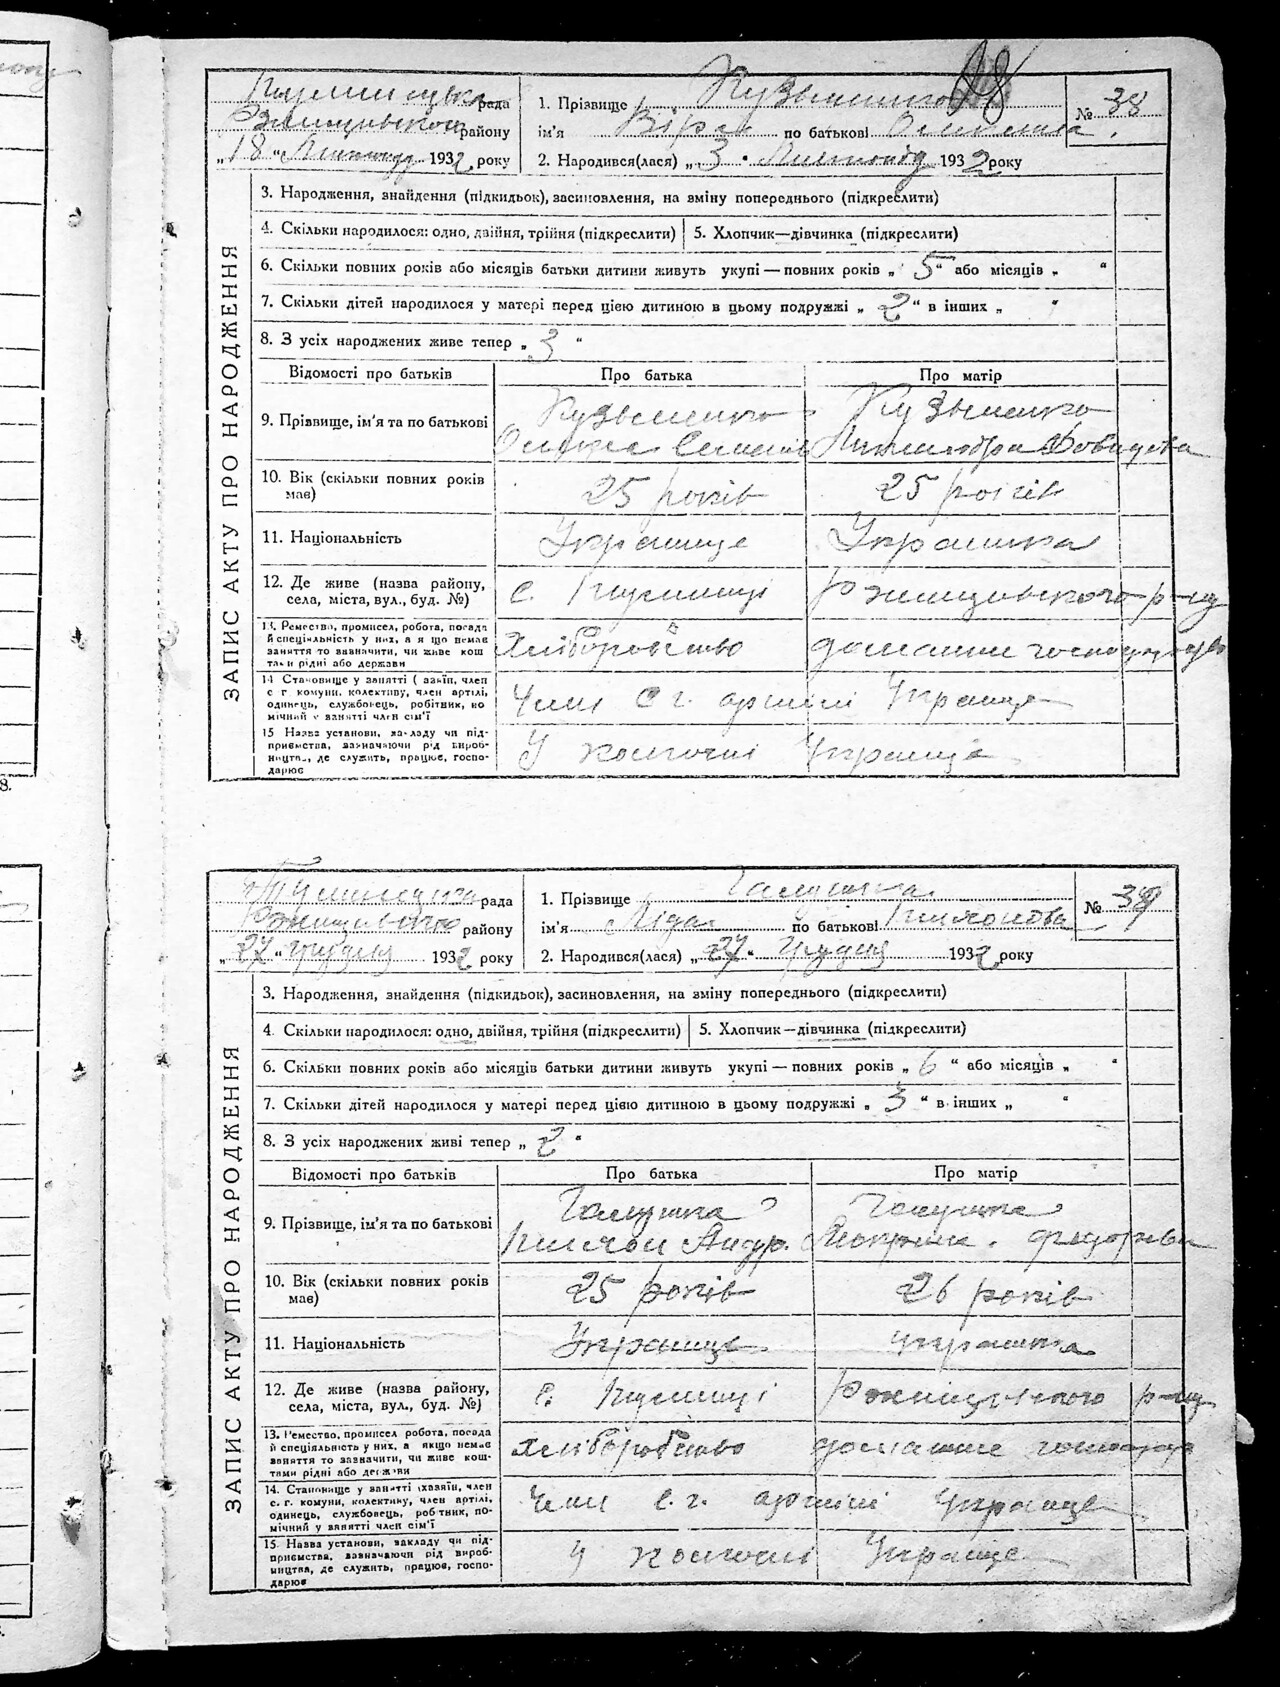 рада
району
„18“ Листопаду 1932 року
1. Прізвище Кузьменко
ім'я Віра по батькові
2. Народився(лася) „3“ Листопад 1932 року
№ 38
ЗАПИС АКТУ ПРО НАРОДЖЕННЯ
3. Народження, знайдення (підкидьок), засиновлення, на зміну попереднього (підкреслити)
4. Скільки народилося: одно, двійня, трійня (підкреслити) 5. Хлопчик—дівчинка (підкреслити)
6. Скільки повних років або місяців батьки дитини живуть укупі — повних років „5“ або місяців „ “
7. Скільки дітей народилося у матері перед цією дитиною в цьому подружжі „2“ в інших „ “
8. З усіх народжених живе тепер „3“
Відомості про батьків Про батька Про матір
9. Прізвище, ім'я та по батькові Кузьменко Кузьменко
10. Вік (скільки повних років має) 25 років 25 років
11. Національність Українець Українка
12. Де живе (назва району, села, міста, вул., буд. №) с. Ржищівського р-ну
13. Ремество, промисел, робота, посада й спеціяльність у них, а якщо немає заняття то зазначити, чи живе коштами рідні або держави хліборобство домашнє
14. Становище у занятті (хазяїн, член с. г. комуни, колективу, член артілі, одинець, службовець, робітник, помічний у занятті член сім'ї Член с. г. артілі
15. Назва установи, закладу чи підприємства, зазначаючи рід виробництва, де служить, працює, господарює У колгоспі
рада
району
„27“ грудня 1932 року
1. Прізвище Галушка
ім'я Лідія по батькові
2. Народився(лася) „27“ грудня 1932 року
№ 39
ЗАПИС АКТУ ПРО НАРОДЖЕННЯ
3. Народження, знайдення (підкидьок), засиновлення, на зміну попереднього (підкреслити)
4. Скільки народилося: одно, двійня, трійня (підкреслити) 5. Хлопчик—дівчинка (підкреслити)
6. Скільки повних років або місяців батьки дитини живуть укупі — повних років „6“ або місяців „ “
7. Скільки дітей народилося у матері перед цією дитиною в цьому подружжі „3“ в інших „ “
8. З усіх народжених живі тепер „2“
Відомості про батьків Про батька Про матір
9. Прізвище, ім'я та по батькові Галушка Галушка
10. Вік (скільки повних років має) 25 років 26 років
11. Національність Українець українка
12. Де живе (назва району, села, міста, вул., буд. №) с. р-ну
13. Ремество, промисел робота, посада й спеціяльність у них, а якщо немає заняття то зазначити, чи живе коштами рідні або держави хліборобство домашнє
14. Становище у занятті (хазяїн, член с. г. комуни, колективу, член артілі, одинець, службовець, робітник, помічний у занятті член сім'ї Член с. г. артілі
15. Назва установи, закладу чи підприємства, зазначаючи рід виробництва, де служить, працює, господарює У колгоспі